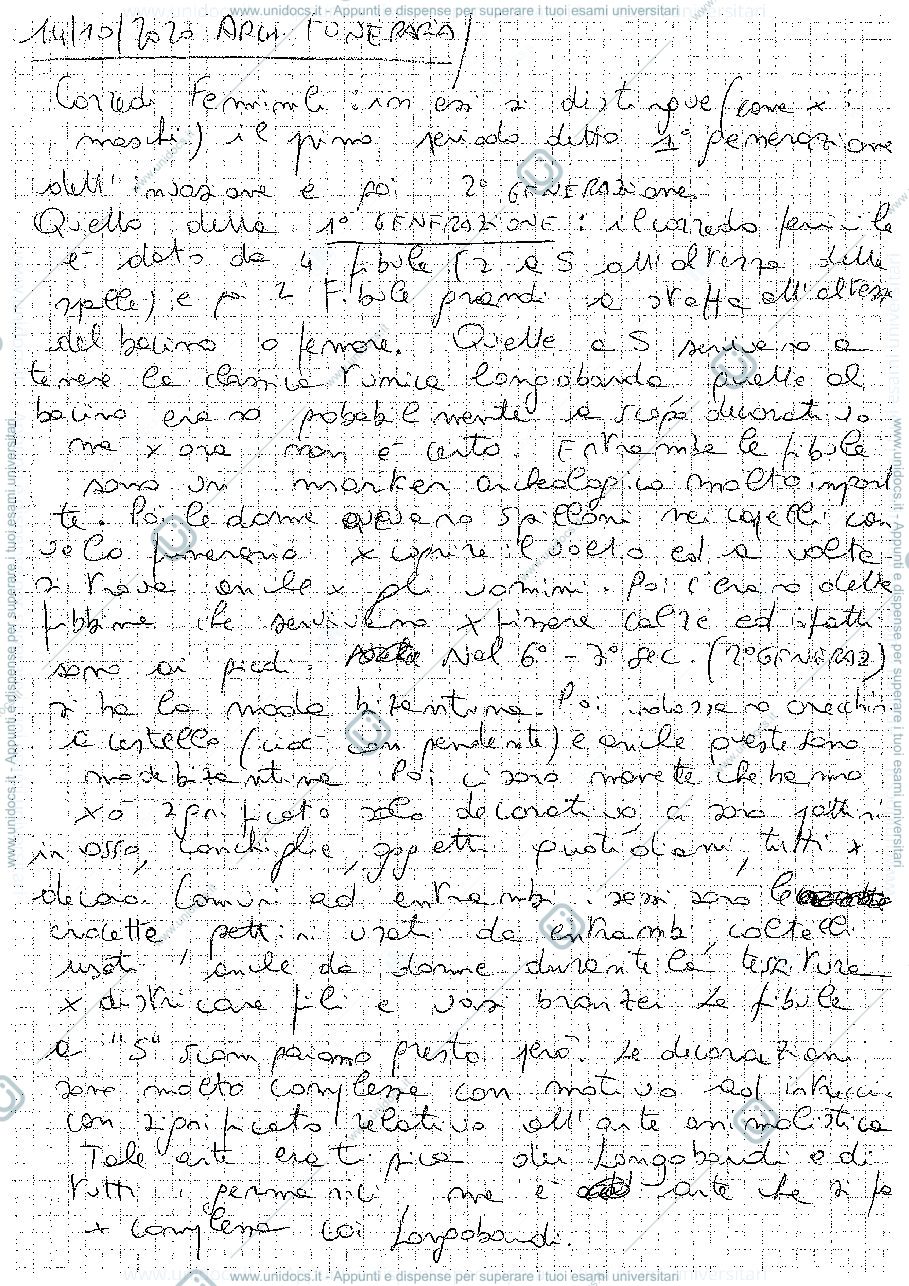 www.unidocs.it - Appunti e dispense per superare i tuoi esami universitari
14/10/2020 ARCH FUNERARIA
Corredi Femminili: in essi si distingue (come x i
maschi) il primo periodo detto 1° generazione
dell'invasione e poi 2° GENERAZIone.
Quello della 1° GENERAZIONE: il corredo femminile
è dato da 4 fibule (2 a S all'altezza delle
spalle) e poi 2 Fibule grandi a staffa all'altezza
del bacino o femore. Quelle a S servivano a
tenere la classica tunica longobarda quelle al
bacino erano probabilmente a scopo decorativo
ma x ora non è certo. Entrambe le fibule
sono un marker archeologico molto import
te. Poi le donne avevano spilloni nei capelli con
velo funerario x coprire il volto ed a volte
si trova anche x gli uomini. Poi c'erano delle
fibbine che servivano x fissare calze ed infatti
sono ai piedi. Nel 6° - 7° sec. (2° GENERAZ)
si ha la moda bizantina. Poi indossano orecchini
a cestello (cioè con pendente) e anche queste sono
moda bizantina. Poi ci sono monete che hanno
xò significato solo decorativo, ci sono pettini
in osso, conchiglie, oggetti quotidiani, tutti x
decoro. Comuni ad entrambi i sessi sono le
crocette, pettini usati da entrambi, coltelli
usati anche da donne durante la tessitura
x districare fili e vasi bronzei. Le fibule
a "S" scompaiono presto però. Le decorazioni
sono molto complesse con motivo ad intrecci
con significato relativo all'arte animalistica
Tale arte era tipica dei Longobardi e di
tutti i germanici ma è arte che si fa
+ complessa coi Longobardi.
www.unidocs.it - Appunti e dispense per superare i tuoi esami universitari